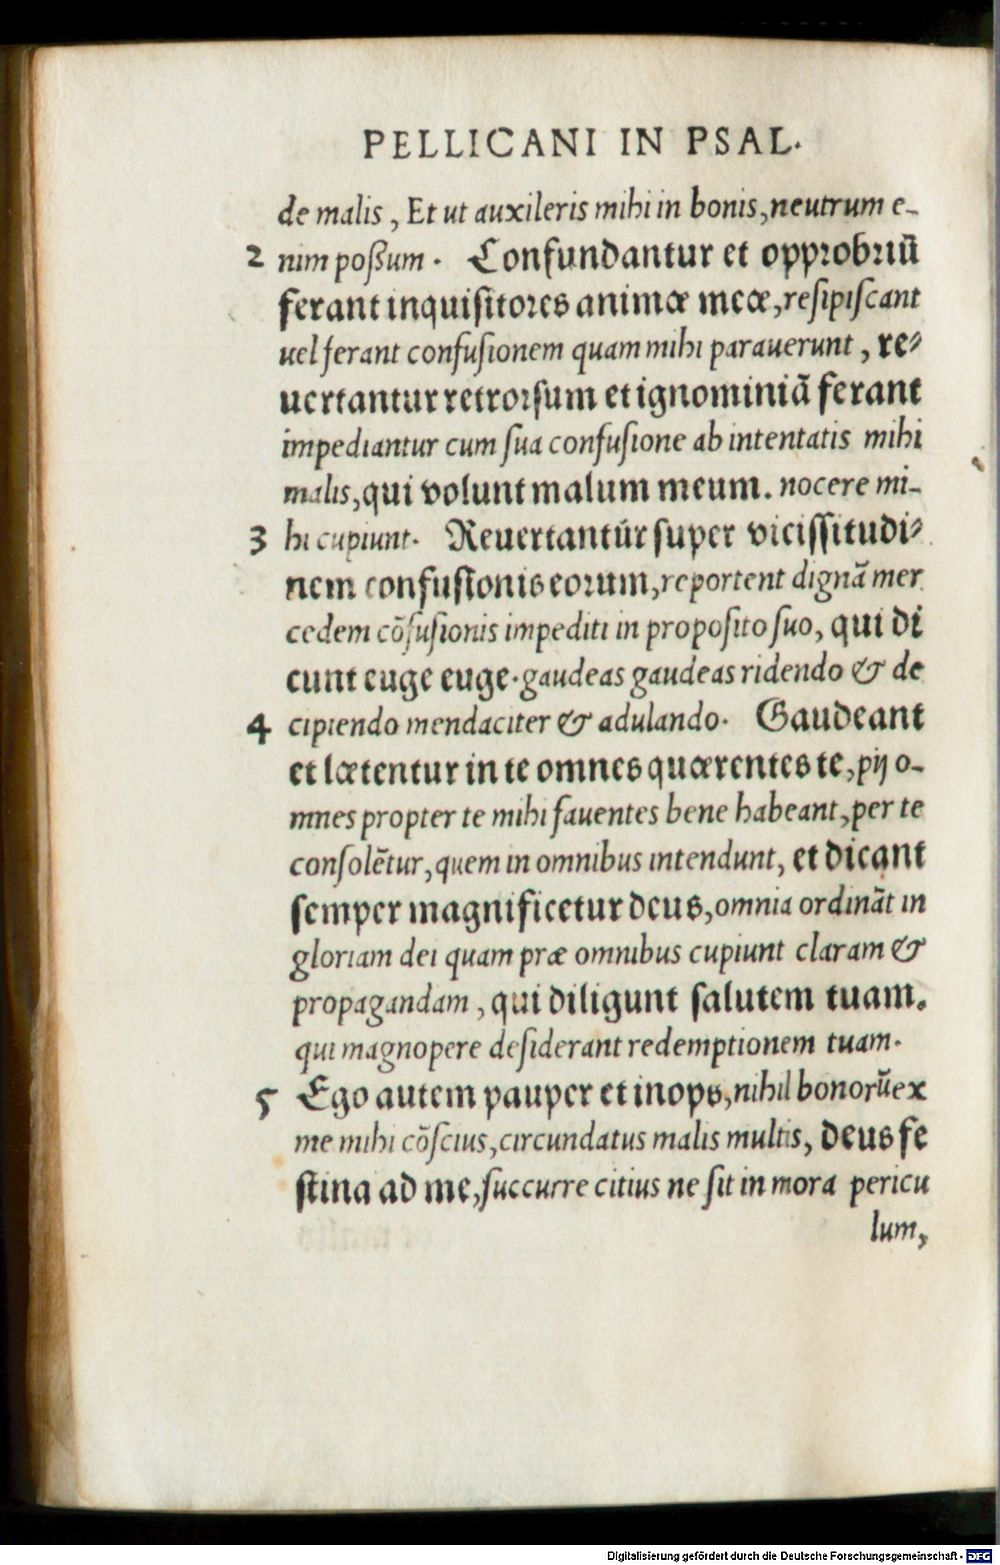 PELLICANI IN PSAL.
de malis, Et ut auxileris mihi in bonis, neutrum e-
2 nim poßum. Confundantur et opprobriũ
ferant inquisitores animæ meæ, resipiscant
uel ferant confusionem quam mihi parauerunt, re-
uertantur retrorsum et ignominiã ferant
impediantur cum sua confusione ab intentatis mihi
malis, qui volunt malum meum. nocere mi-
3 hi cupiunt. Reuertantur super vicissitudi-
nem confusionis eorum, reportent dignã mer
cedem cõfusionis impediti in proposito suo, qui di
cunt euge euge. gaudeas gaudeas ridendo & de
4 cipiendo mendaciter & adulando. Gaudeant
et lætentur in te omnes quærentes te, pij o-
mnes propter te mihi fauentes bene habeant, per te
consolẽtur, quem in omnibus intendunt, et dicant
semper magnificetur deus, omnia ordinãt in
gloriam dei quam præ omnibus cupiunt claram &
propagandam, qui diligunt salutem tuam.
qui magnopere desiderant redemptionem tuam.
5 Ego autem pauper et inops, nihil bonorũ ex
me mihi cõscius, circundatus malis multis, deus fe
stina ad me, succurre citius ne sit in mora pericu
lum,
Digitalisierung gefördert durch die Deutsche Forschungsgemeinschaft - DFG